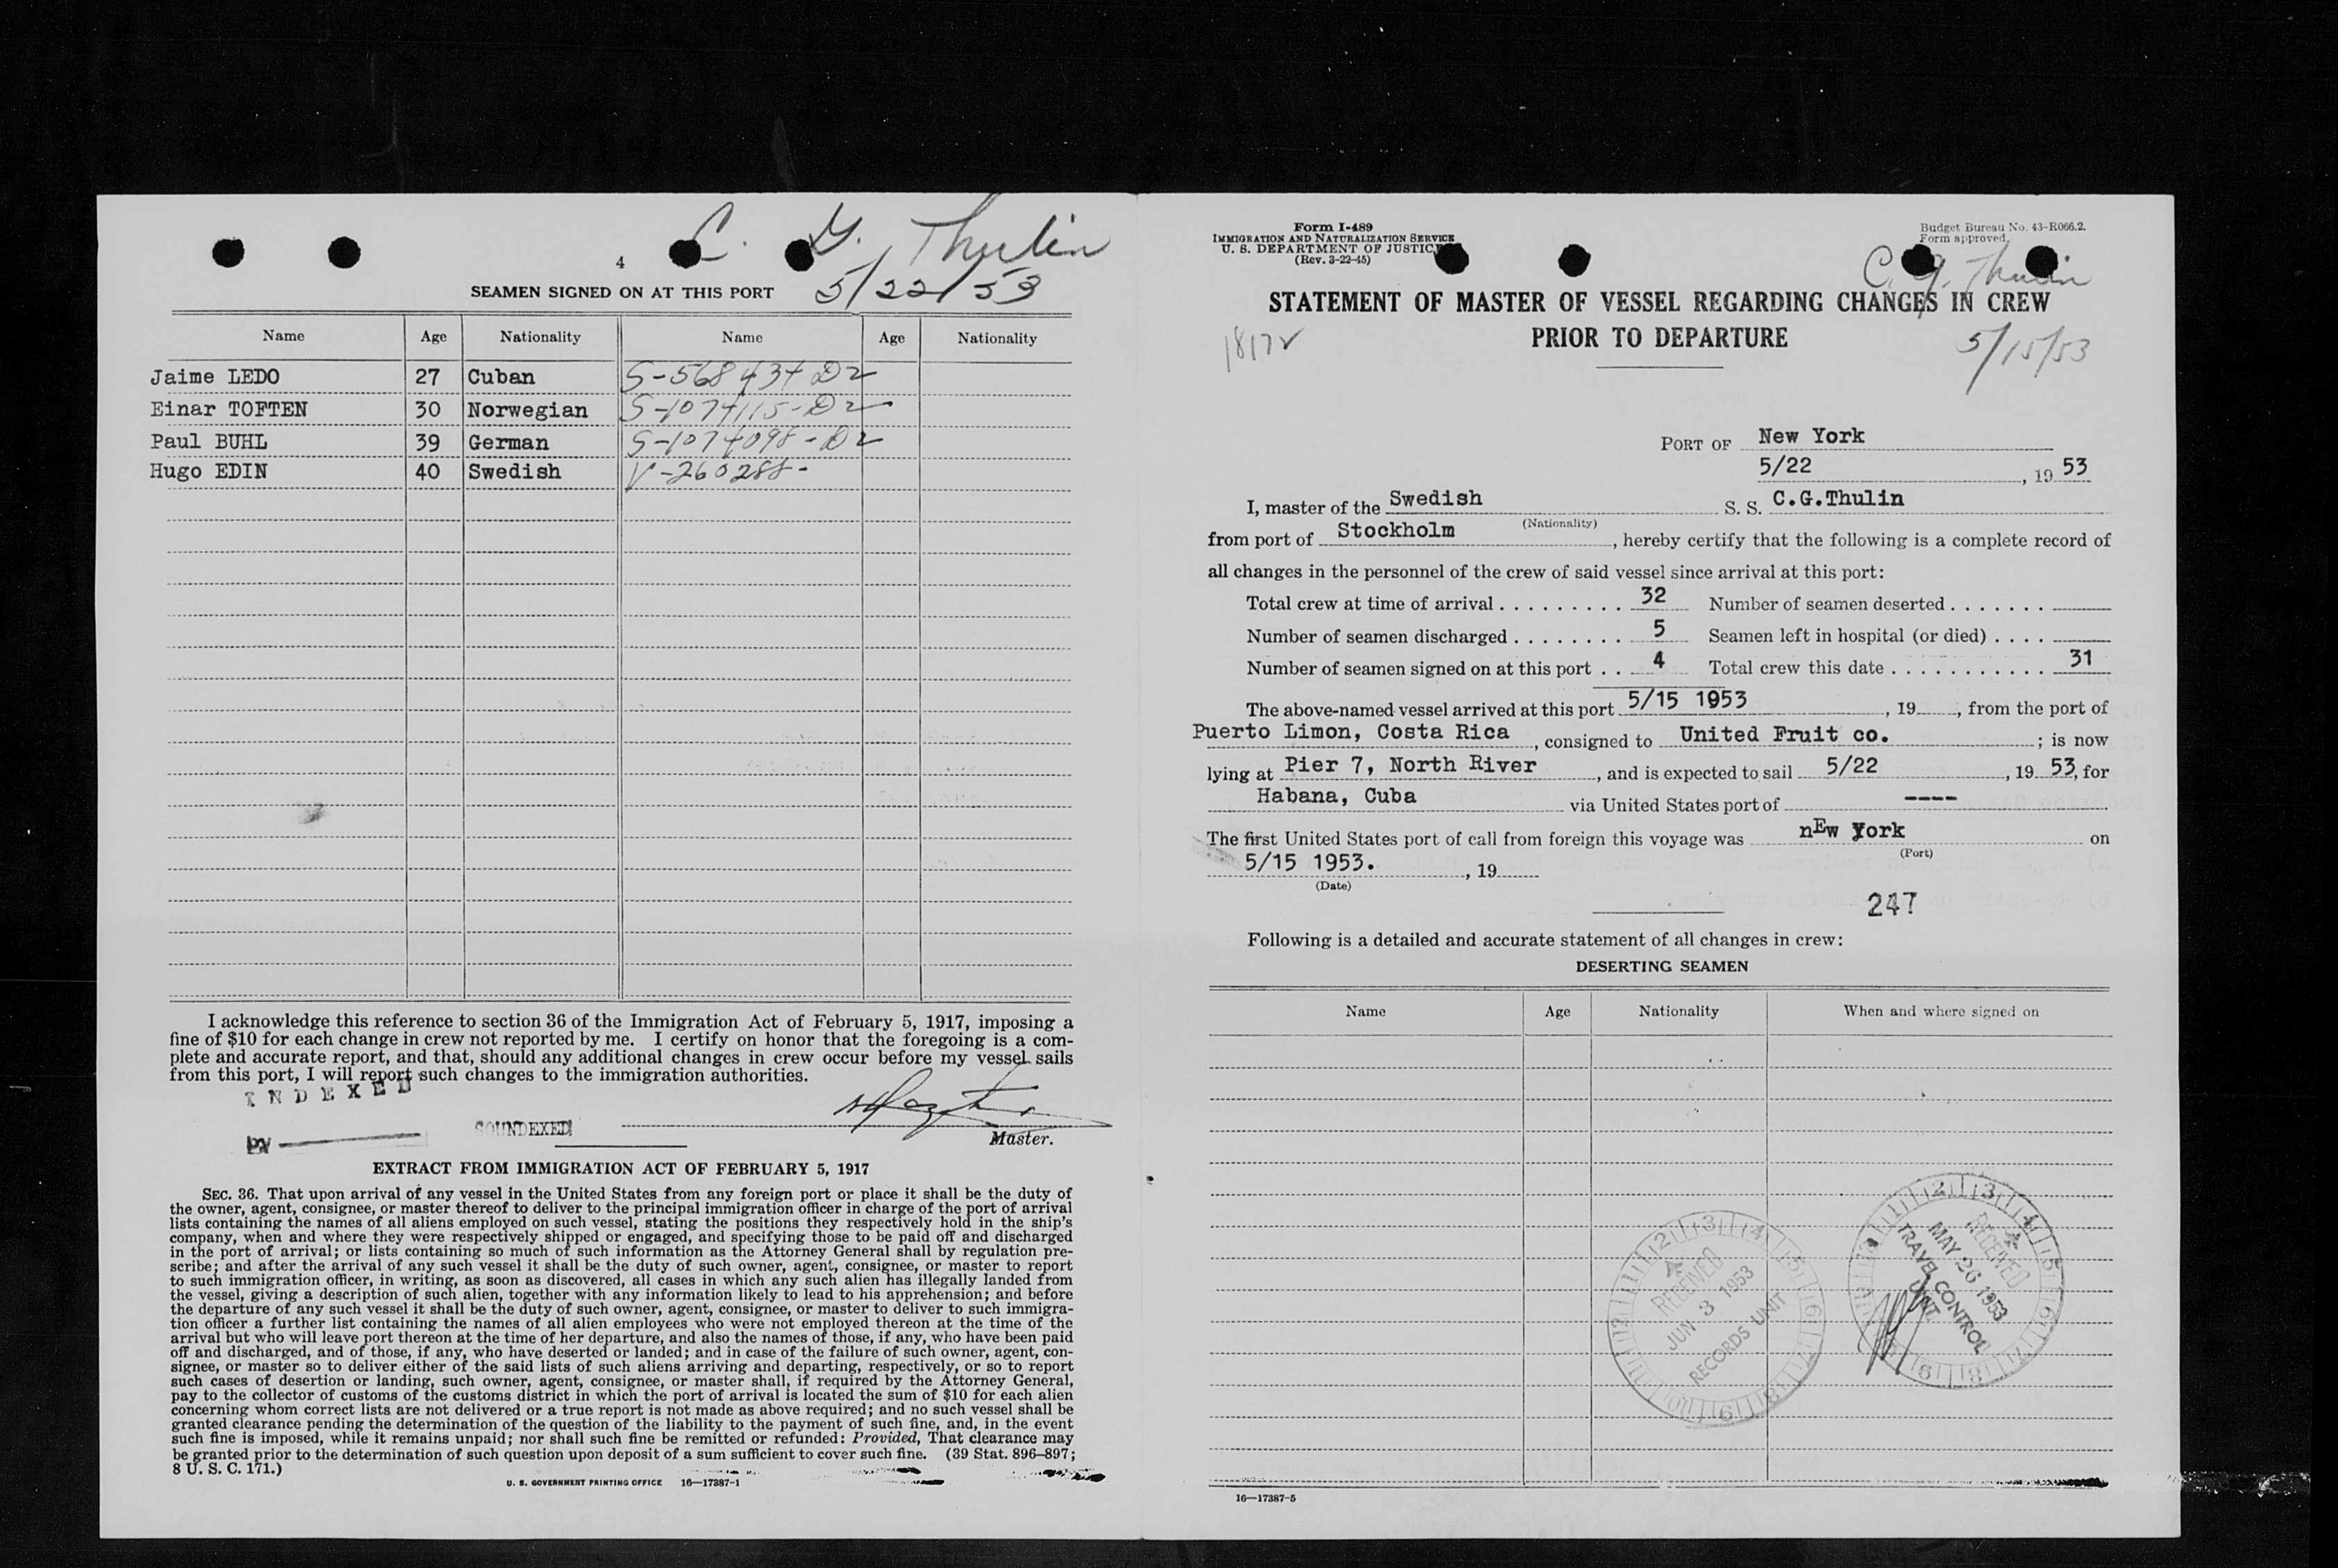 C. G. Thulin
4
5/22/53
SEAMEN SIGNED ON AT THIS PORT
Name Age Nationality Name Age Nationality
Jaime LEDO 27 Cuban S-568434 D2
Einar TOFTEN 30 Norwegian S-1074115-D2
Paul BUHL 39 German S-1074098-D2
Hugo EDIN 40 Swedish V-260288-
I acknowledge this reference to section 36 of the Immigration Act of February 5, 1917, imposing a
fine of $10 for each change in crew not reported by me. I certify on honor that the foregoing is a com-
plete and accurate report, and that, should any additional changes in crew occur before my vessel sails
from this port, I will report such changes to the immigration authorities.
INDEXED
BY
SOUNDEXED
Master.
EXTRACT FROM IMMIGRATION ACT OF FEBRUARY 5, 1917
SEC. 36. That upon arrival of any vessel in the United States from any foreign port or place it shall be the duty of
the owner, agent, consignee, or master thereof to deliver to the principal immigration officer in charge of the port of arrival
lists containing the names of all aliens employed on such vessel, stating the positions they respectively hold in the ship's
company, when and where they were respectively shipped or engaged, and specifying those to be paid off and discharged
in the port of arrival; or lists containing so much of such information as the Attorney General shall by regulation pre-
scribe; and after the arrival of any such vessel it shall be the duty of such owner, agent, consignee, or master to report
to such immigration officer, in writing, as soon as discovered, all cases in which any such alien has illegally landed from
the vessel, giving a description of such alien, together with any information likely to lead to his apprehension; and before
the departure of any such vessel it shall be the duty of such owner, agent, consignee, or master to deliver to such immigra-
tion officer a further list containing the names of all alien employees who were not employed thereon at the time of the
arrival but who will leave port thereon at the time of her departure, and also the names of those, if any, who have been paid
off and discharged, and of those, if any, who have deserted or landed; and in case of the failure of such owner, agent, con-
signee, or master so to deliver either of the said lists of such aliens arriving and departing, respectively, or so to report
such cases of desertion or landing, such owner, agent, consignee, or master shall, if required by the Attorney General,
pay to the collector of customs of the customs district in which the port of arrival is located the sum of $10 for each alien
concerning whom correct lists are not delivered or a true report is not made as above required; and no such vessel shall be
granted clearance pending the determination of the question of the liability to the payment of such fine, and, in the event
such fine is imposed, while it remains unpaid; nor shall such fine be remitted or refunded: Provided, That clearance may
be granted prior to the determination of such question upon deposit of a sum sufficient to cover such fine. (39 Stat. 896–897;
8 U. S. C. 171.)
U. S. GOVERNMENT PRINTING OFFICE 16—17387-1
Form I-489
IMMIGRATION AND NATURALIZATION SERVICE
U. S. DEPARTMENT OF JUSTICE
(Rev. 3-22-45)
Budget Bureau No. 43-R066.2.
Form approved.
C. G. Thulin
STATEMENT OF MASTER OF VESSEL REGARDING CHANGES IN CREW
PRIOR TO DEPARTURE
5/15/53
PORT OF New York
5/22, 19 53
I, master of the Swedish S. S. C.G.Thulin
(Nationality)
from port of Stockholm, hereby certify that the following is a complete record of
all changes in the personnel of the crew of said vessel since arrival at this port:
Total crew at time of arrival . . . . . . . . . 32 Number of seamen deserted . . . . . . .
Number of seamen discharged . . . . . . . . 5 Seamen left in hospital (or died) . . . .
Number of seamen signed on at this port . . 4 Total crew this date . . . . . . . . . . . 31
The above-named vessel arrived at this port 5/15 1953, 19, from the port of
Puerto Limon, Costa Rica, consigned to United Fruit co.; is now
lying at Pier 7, North River, and is expected to sail 5/22, 19 53, for
Habana, Cuba via United States port of ----
The first United States port of call from foreign this voyage was nEw York on
(Port)
5/15 1953., 19
(Date)
247
Following is a detailed and accurate statement of all changes in crew:
DESERTING SEAMEN
Name Age Nationality When and where signed on
RECEIVED
JUN 3 1953
RECORDS UNIT
RECEIVED
MAY 26 1953
TRAVEL CONTROL
UNIT
16—17387-5